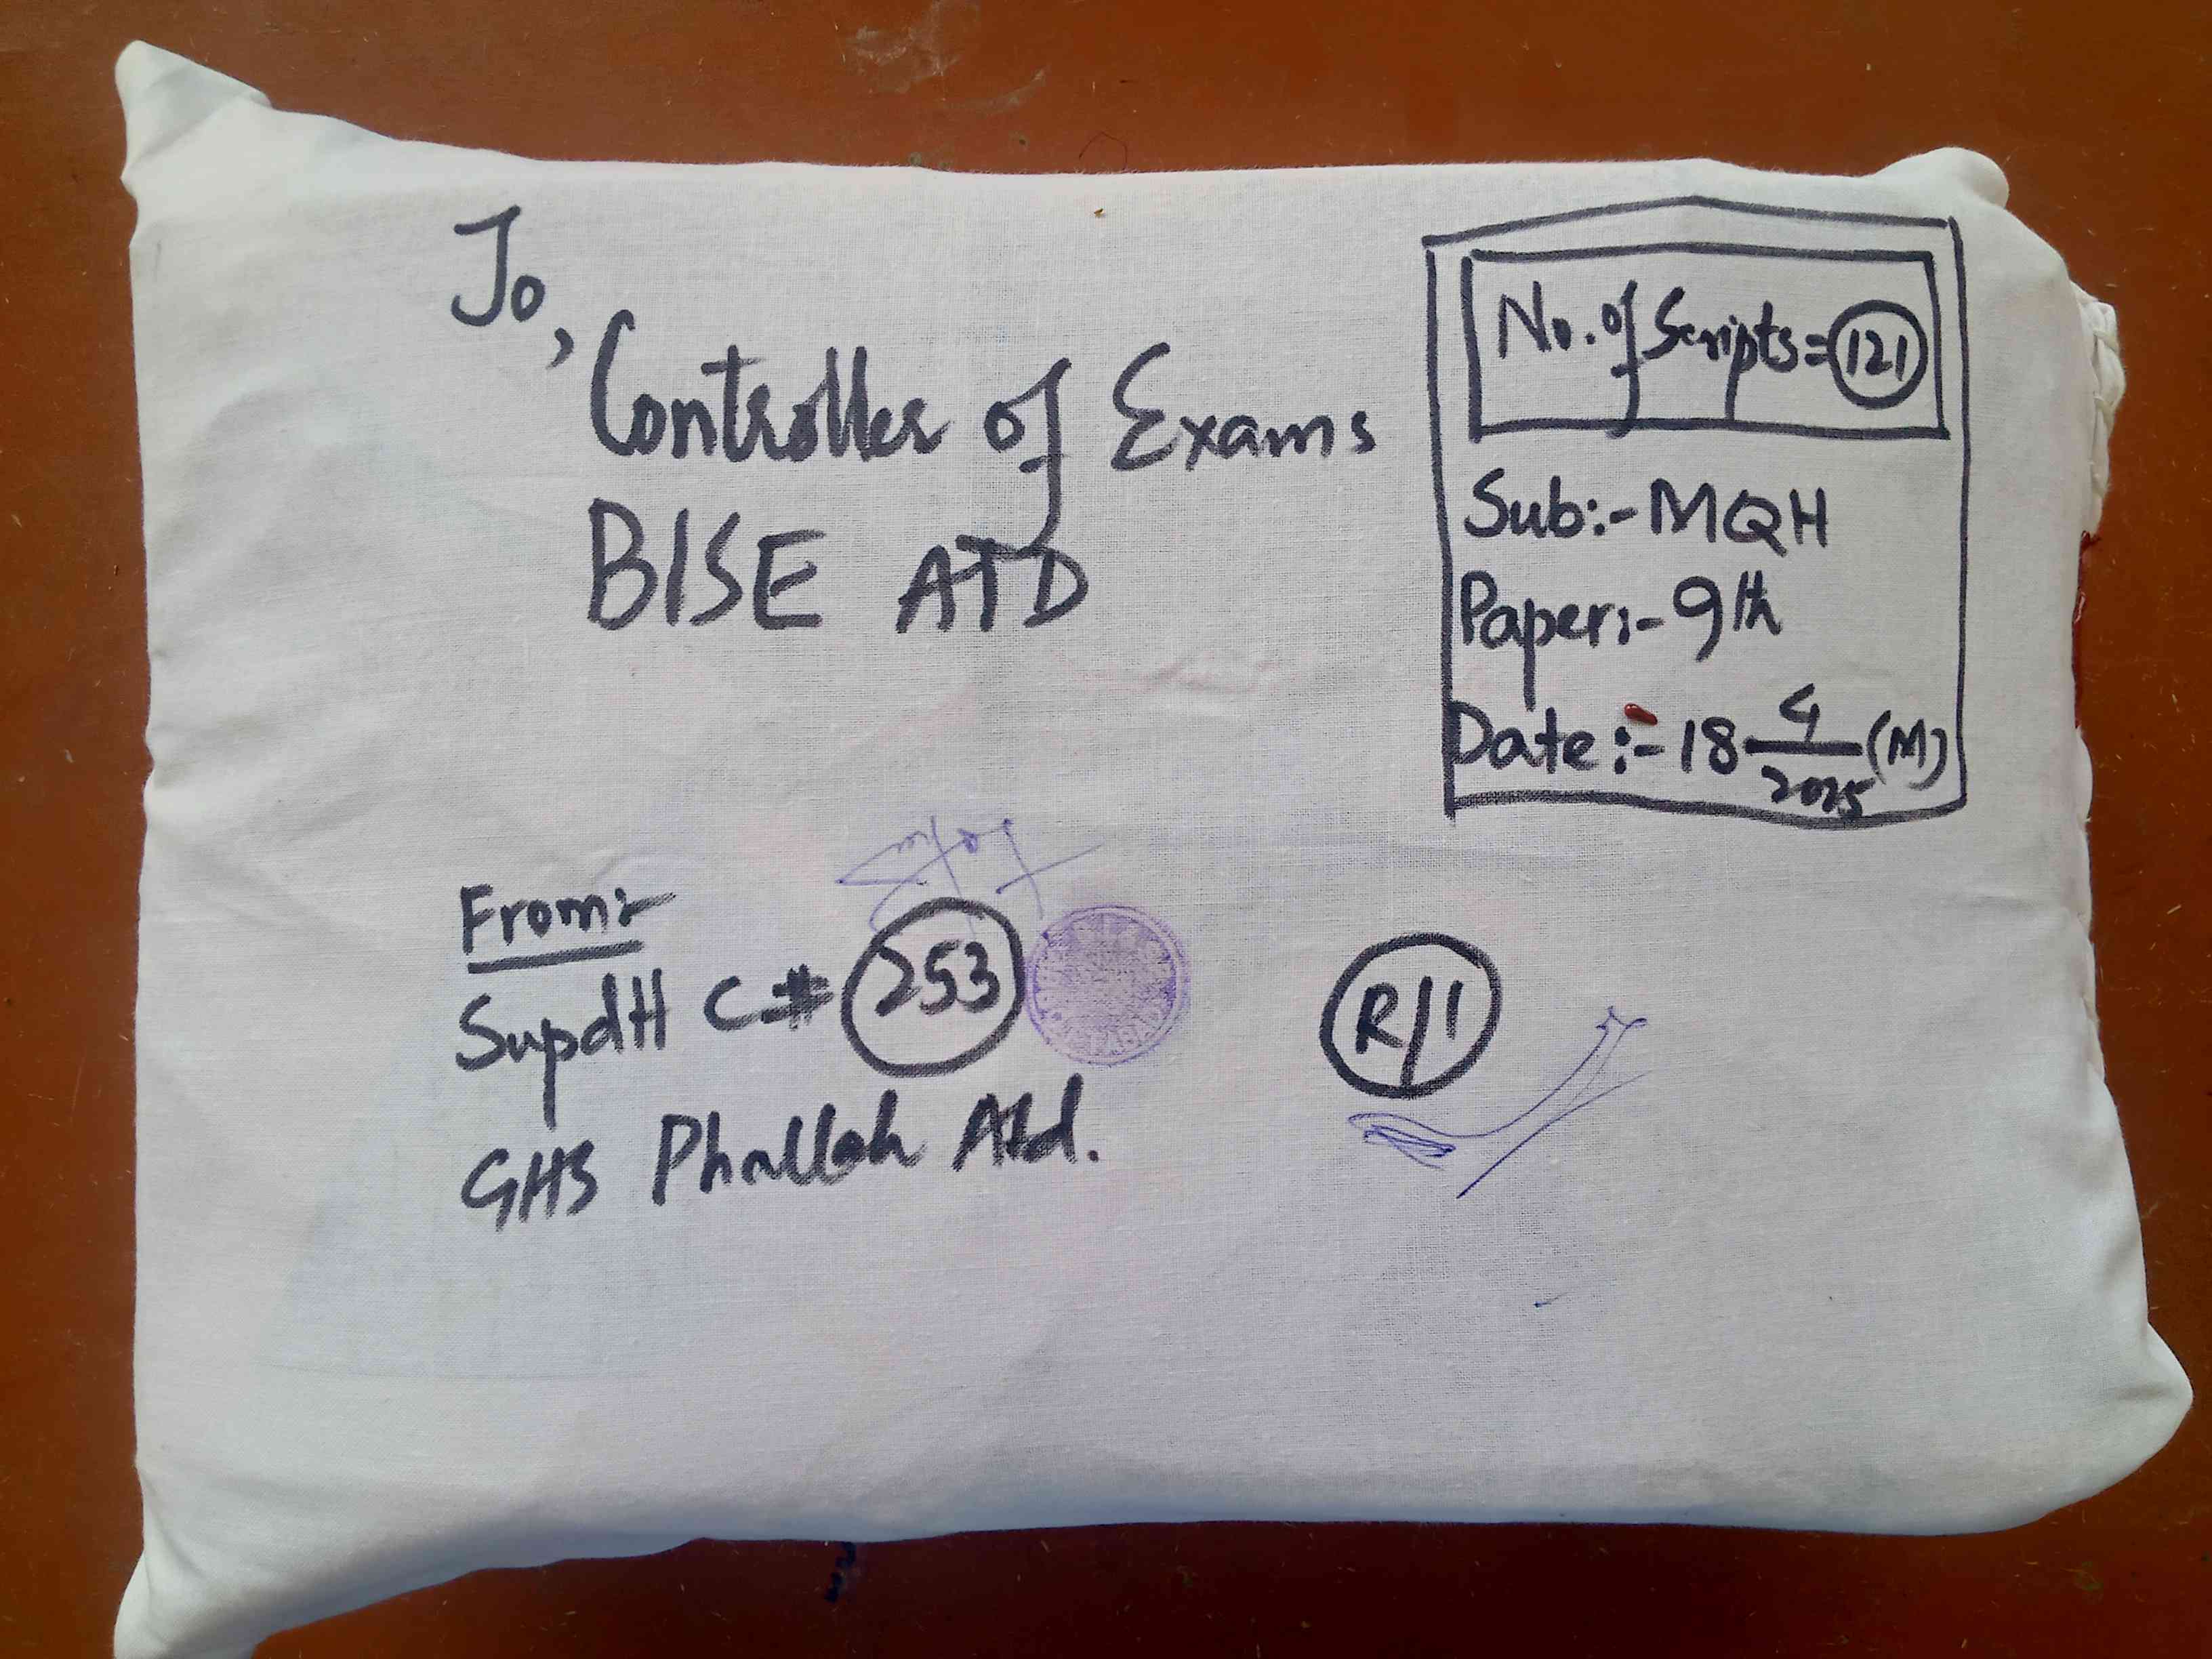 To,
Controller of Exams
BISE ATD
No. of Scripts = 121
Sub:- MQH
Paper:- 9th
Date:- 18 4/2025 (M)
From:-
Supdtt C# 253
R/1
GHS Phallah Atd.